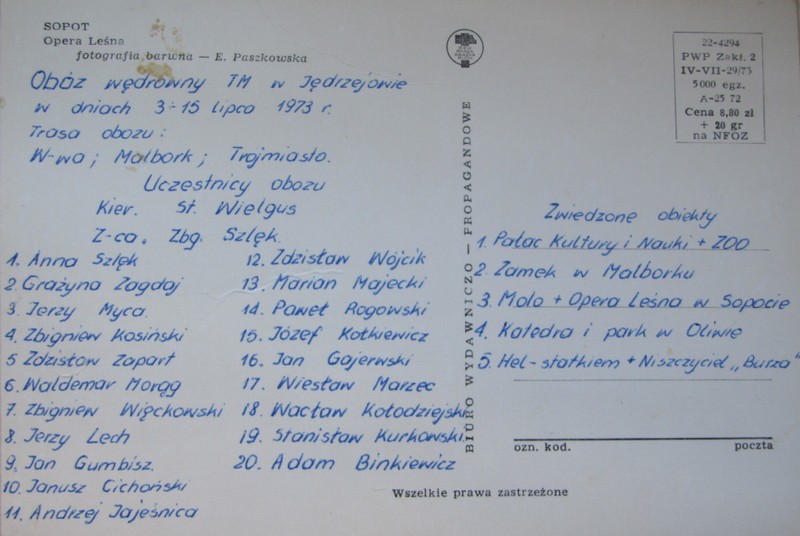 SOPOT
Opera Leśna
fotografia barwna — E. Paszkowska
Obóz wędrowny TM w Jędrzejowie
w dniach 3÷15 lipca 1973 r.
Trasa obozu:
W-wa; Malbork; Trojmiasto.
Uczestnicy obozu
Kier. St. Wielgus
Z-ca. Zbg. Szlęk.
1. Anna Szlęk
2 Grażyna Zagdaj
3. Jerzy Myca.
4. Zbigniew Kosiński
5 Zdzisław Zapart
6. Waldemar Morąg
7. Zbigniew Więckowski
8. Jerzy Lech
9. Jan Gumbisz.
10. Janusz Cichoński
11. Andrzej Jajeśnica
12. Zdzisław Wójcik
13. Marian Majecki
14. Paweł Rogowski
15. Józef Kotkiewicz
16. Jan Gajerwski
17. Wiesław Marzec
18. Wacław Kołodziejski
19. Stanisław Kurkowski.
20. Adam Binkiewicz
BIURO WYDAWNICZO — PROPAGANDOWE
22-4294
PWP Zakł. 2
IV-VII-29/73
5000 egz.
A-25 72
Cena 8,80 zł
+ 20 gr
na NFOZ
Zwiedzone obiekty
1. Pałac Kultury i Nauki + ZOO
2. Zamek w Malborku
3. Molo + Opera Leśna w Sopocie
4. Katedra i park w Oliwie
5. Hel - statkiem + Niszczyciel „Burza"
ozn. kod. poczta
Wszelkie prawa zastrzeżone